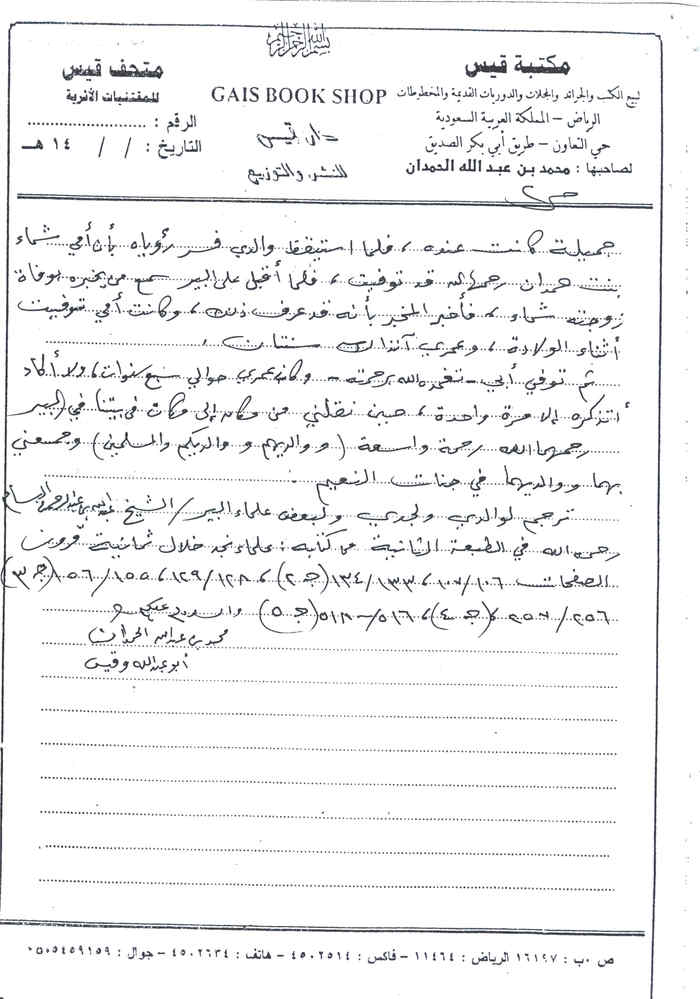 بسم الله الرحمن الرحيم
مكتبة قيس
لبيع الكتب والجرائد والمجلات والدوريات القديمة والمخطوطات
الرياض - المملكة العربية السعودية
حي التعاون - طريق أبي بكر الصديق
لصاحبها : محمد بن عبد الله الحمدان
GAIS BOOK SHOP
دار قيس
للنشر والتوزيع
متحف قيس
للمقتنيات الأثرية
الرقم :
التاريخ : / / ١٤ هـ
جميلة كانت عنده ، فلما استيقظ والدي فسر رؤياه بأن أمي شماء
بنت حمدان رحمها الله قد توفيت ، فلما أقبل على البير سمع من يخبره بوفاة
زوجته شماء ، فأخبر المخبر بأنه قد عرف ذلك ، وكانت أمي توفيت
أثناء الولادة ، وعمري آنذاك سنتان .
ثم توفي أبي - تغمده الله برحمته - وكان عمري حوالي سبع سنوات ، ولا أكاد
أتذكره إلا مرة واحدة ، حين نقلني من مكان إلى مكان في بيتنا في البير
رحمهما الله رحمة واسعة ( ووالديهم ووالديكم والمسلمين ) وجمعني
بهما ووالديهما في جنات النعيم .
ترجم لوالدي ولجدي ولبعض علماء البير / الشيخ عبدالله بن عبدالرحمن البسام
رحمه الله في الطبعة الثانية من كتابه : علماء نجد خلال ثمانية قرون
الصفحات ١٠٦/١٠٧ ، ١٣٣/١٣٤ (جـ ٢) ، ١٢٨/١٢٩ ، ١٥٥/١٥٦ (جـ ٣)
٢٥٦/٢٥٧ (جـ ٤) ، ٥١٦-٥١٨ (جـ ٥) والسلام عليكم
محمد بن عبدالله الحمدان
أبو عبدالله وقيس
ص ٠ب : ١٦١٩٧ الرياض : ١١٤٦٤ - فاكس : ٤٥٠٢٥١٤ - هاتف : ٤٥٠٢٦٣٤ - جوال : ٠٥٠٥٤٥٩١٥٩